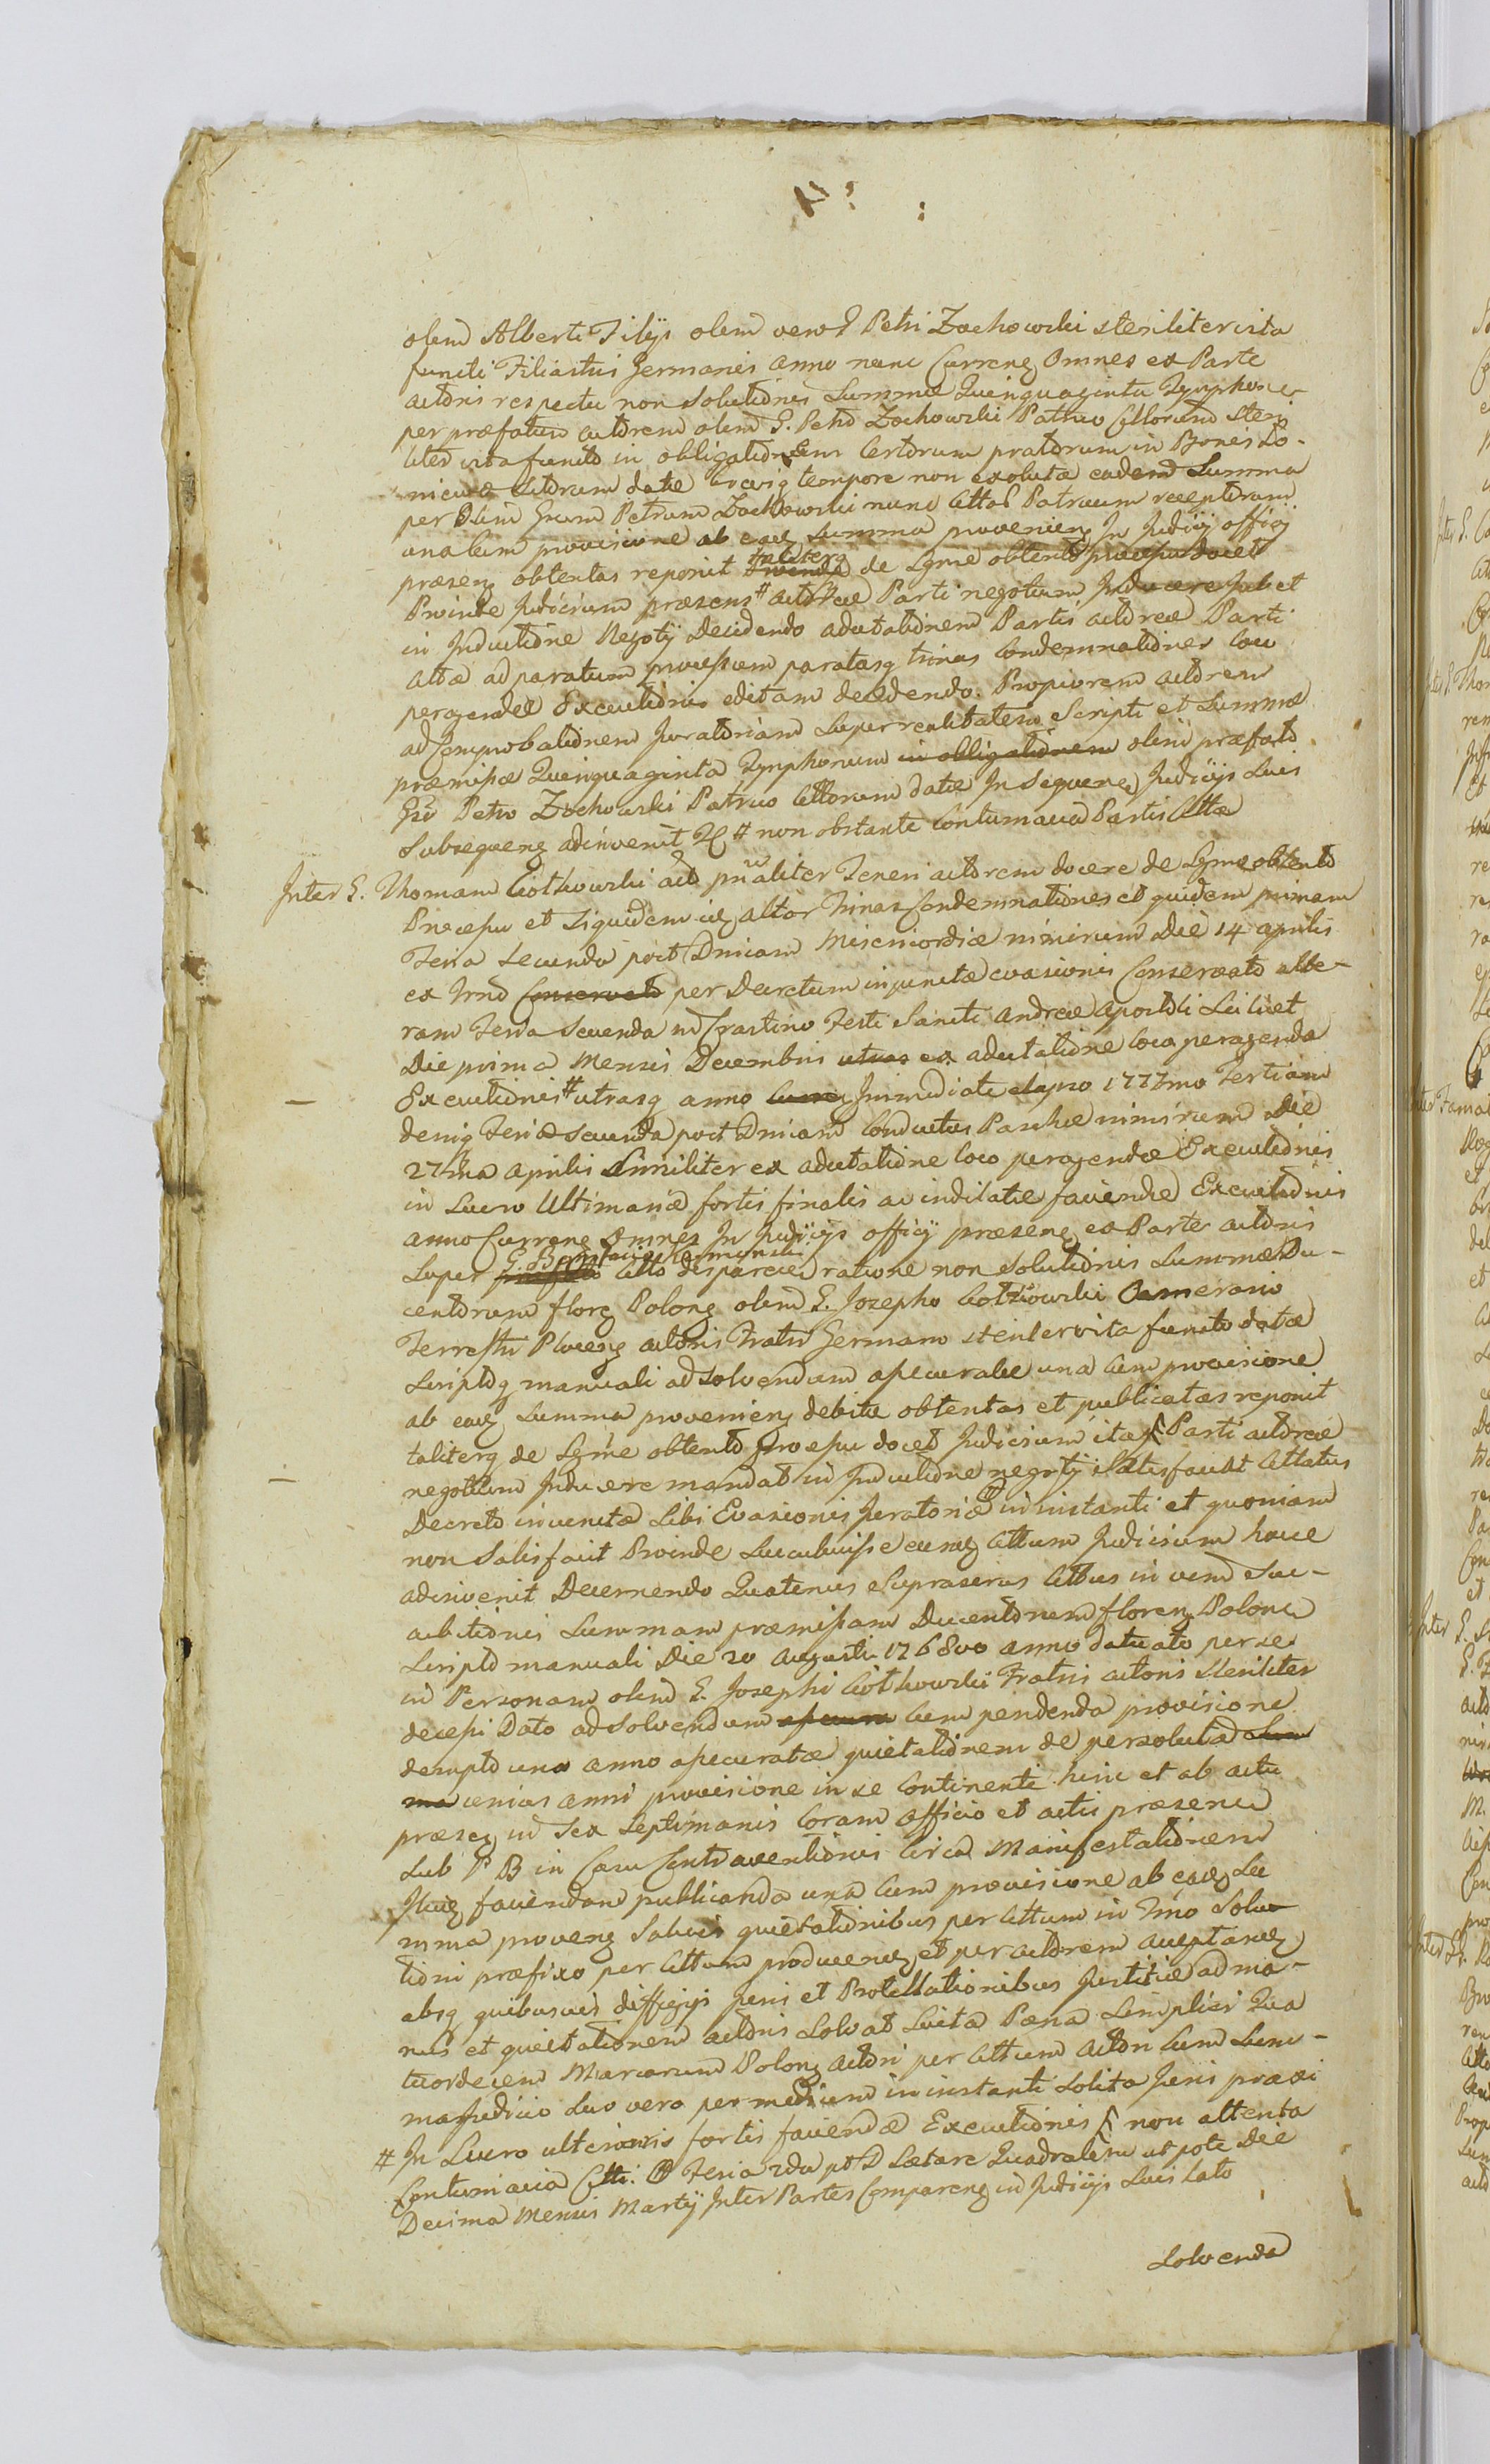 olim Alberti Filijs olim vero G Petri Zochowski steriliter vita
functi Filiastris Germanis anno nunc Curreng Omnes ex Parte
actoris respectu non Solutionis Summæ Quinquaginta Tynphon
per præfatum actorem olim G. Petro Zochowski Patruo Cittorum steri
liter vita functo in obligationem Certorum pratorum in Bonis
actorum datæ tempore non exolutæ eadem Summa
per olim Grum Petrum Zochowski nunc Cittat Patruum receptorum
una cum provisione ab eadz Summa provenien In Judicij officij
præseng obtentas reponit taliterq de Lgme obtento processu docet
Proinde Judicium præsens # actoreæ Parti negotium Inducere Jubet
in Inductione Negotij Decidendo adcitationem Partis actoreæ Parti
Cittæ ad paratum processum paratasq trinas Condemnationes loco
peragendæ Executionis editam decidendo. Propiorem actorem
ad Comprobationem Juratoriam Super realitatem Scripti et Summæ
præmissæ Quinquaginta Tynphonum in obligationem olim præfato
Gro Petro Zochowski Patruo Cittorum datæ In Sequenc Judicijs Suis
Subsequeng adinvenit # non obstanti Contumacia Partis Cittæ
Inter G. Thomam Ciołkowski act prnaliter Teneri actorem docere de Lgme obtento
Processu et Siquidem Trinas Condemnationes et quidem primam
Feria Secunda post Dnicam Misericordiæ nimirum Die 14 aprilis
ex Trno Conservato per Decretum injunctæ evasionis Conservato alte-
ram Feria Secunda in Crastino Festi Sancti Andreæ Apostoli Scilicet
Die prima Mensis Decembris utras ex adcitatione loco peragenda
Executionis # utrasq anno Immediate elapso 1777mo Tertiam
deniq Feria Secunda post Dnicam Conductus Paschæ nimirum Die
27ma aprilis Similiter ex adcitatione loco peragendæ Executionis
in Lucro Ultimariæ fortis finalis ac indilatæ faciendæ Executionis
anno Curreng Omnes In Judicijs officij præseng ex Parte actoris
Super Citto disparcen ratione non Solutionis Summæ Du-
centorum floreng Polong olim G. Josepho Ciołkowski Camerario
Terrestri actoris Fratri Germano steriliter vita functo datæ
Scriptoq manuali ad Solvendum assecuratæ una cum provisione
ab eadz Summa provenieng debitæ obtentas et publicatas reponit
taliterq de Lgme obtento processu docet Judicium itaq Parti actoreæ
negotium Inducere mandat in Inductione negotij Satisfaciat Cittatus
Decreto injunctæ Sibi Evasionis Juratoriæ in instanti et quoniam
non Satisfacit Proinde Succubuisse Cittum Judicium hocce
adinvenit Decernendo Quatenus Suprascrus Cittus in vim Suc-
cubitionis Summam præmissam Ducentorum floreng Polonc
Scripto manuali Die 20 Augusti 1768vo anno datuato per se
in Personam olim G. Josephi Ciołkowski Fratris actoris Steriliter
decessi Dato ad Solvendum Cum pendenda provisione
dempto uno anno assecuratæ quietationem de persoluta
unius anni provisione in se Continenti hinc et ab actu
præseng in Sex Septimanis Coram officio et actis præsenc
Sub P B in Casu Contraventionis Circa Manifestationem
faciendam publicanda una cum provisione ab eadz Su
mma proveng Salvis quietationibus per Cittum in Trno Solu
tioni præfixo per Cittum producend et per actorem acceptand
absq quibusvis diffugijs Juris et Protestationibus Justitiæ ad ma-
nus et quietationem actoris Solvat Luita Pæna Simplici Qua
tuordecim Marcarum Polong actori per Cittum actori cum Sum-
ma Judicio Suo vero per medium in instanti Solito Juris praxi
# In Lucro ulterioris fortis faciendæ Executionis non attenta
Contumacia Citti. Feria 2da pt D Lætare Quadralem ut pote Die
Decima Mensis Martij Inter Partes Compareng in Judicijs Suis Lato
Solvenda